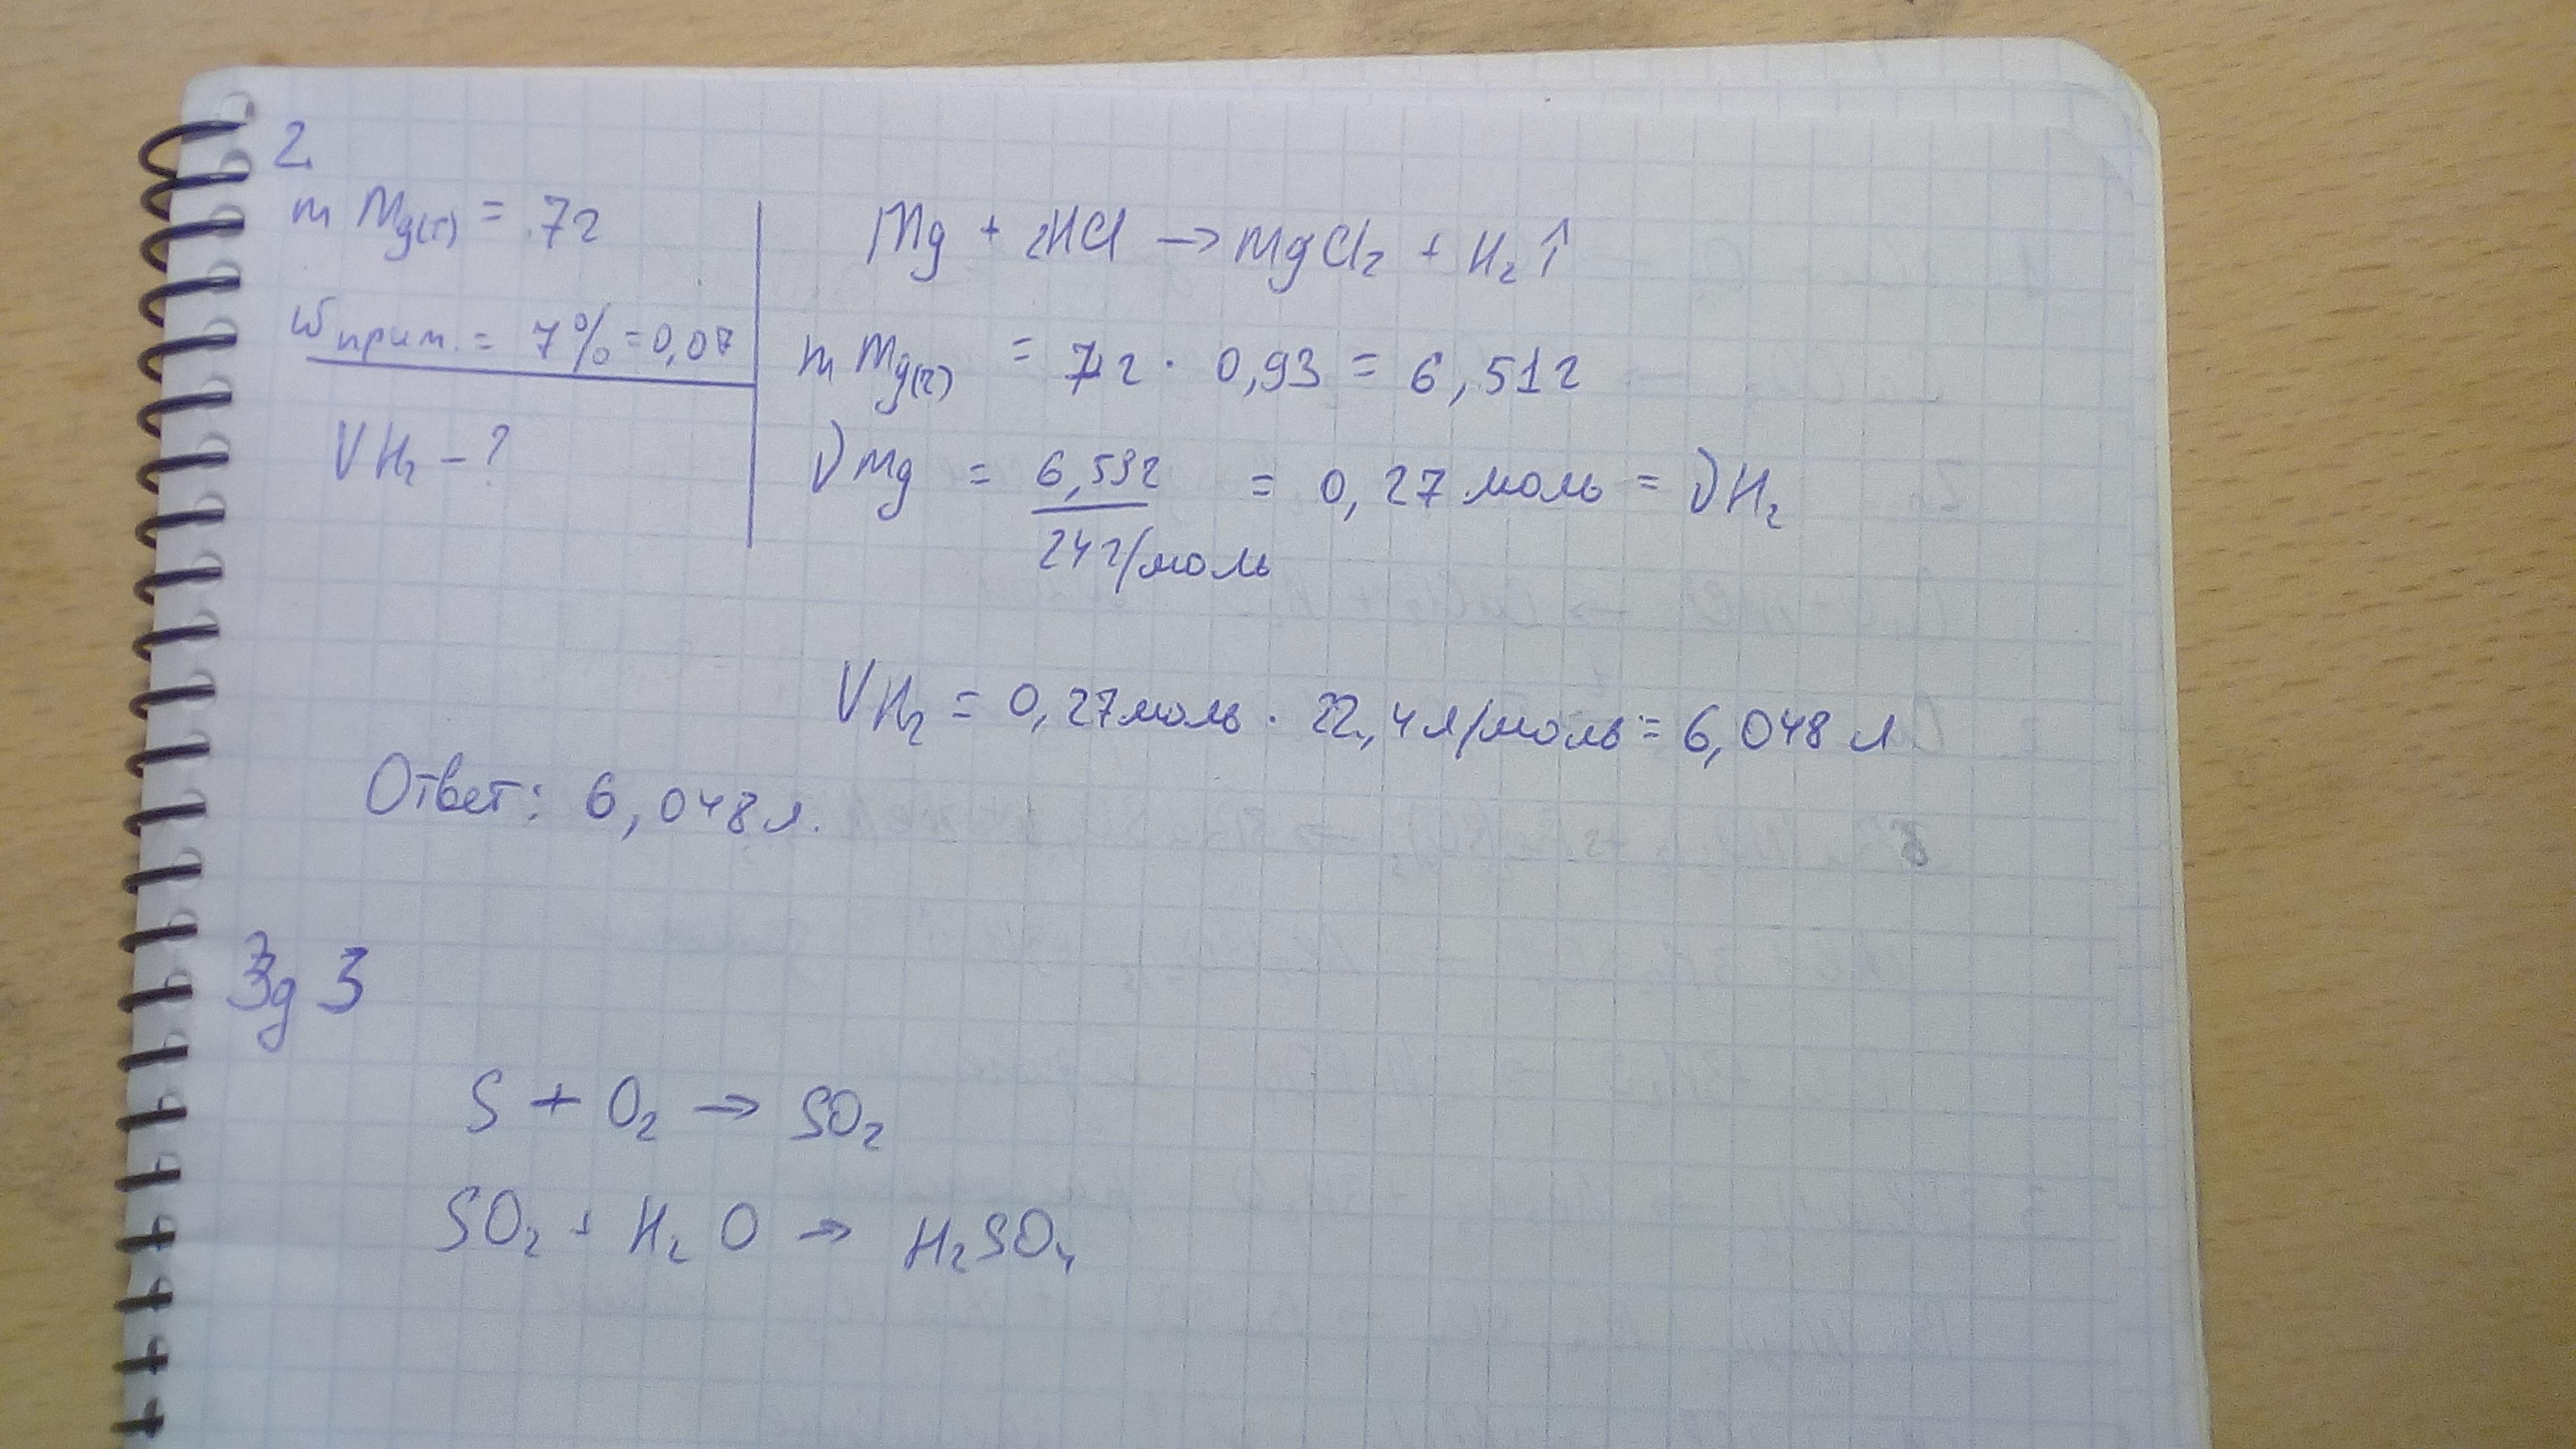 2.
m Mg(т) = 7г
wприм. = 7% = 0,07
V H₂ - ?
Mg + 2HCl → MgCl₂ + H₂↑
m Mg(г) = 7г · 0,93 = 6,51г
ν Mg = 6,53г / 24г/моль = 0,27 моль = ν H₂
V H₂ = 0,27моль · 22,4л/моль = 6,048 л.
Ответ: 6,048л.
Зд 3
S + O₂ → SO₂
SO₂ + H₂O → H₂SO₄